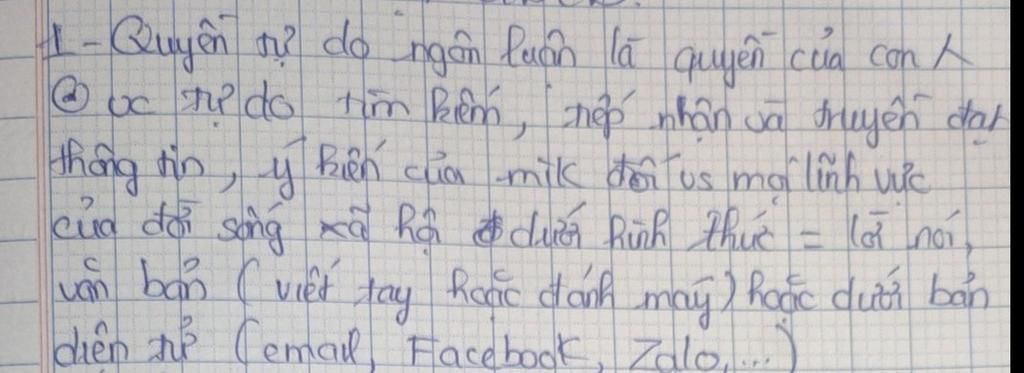 1 - Quyền tự do ngôn luận là quyền của con λ
đc tự do tìm kiếm, tiếp nhận và truyền đạt
thông tin, ý kiến của mik đối vs mọi lĩnh vực
của đời sống xã hội dưới hình thức = lời nói,
văn bản (viết tay hoặc đánh máy) hoặc dưới bản
điện tử (email, Facebook, Zalo,...)